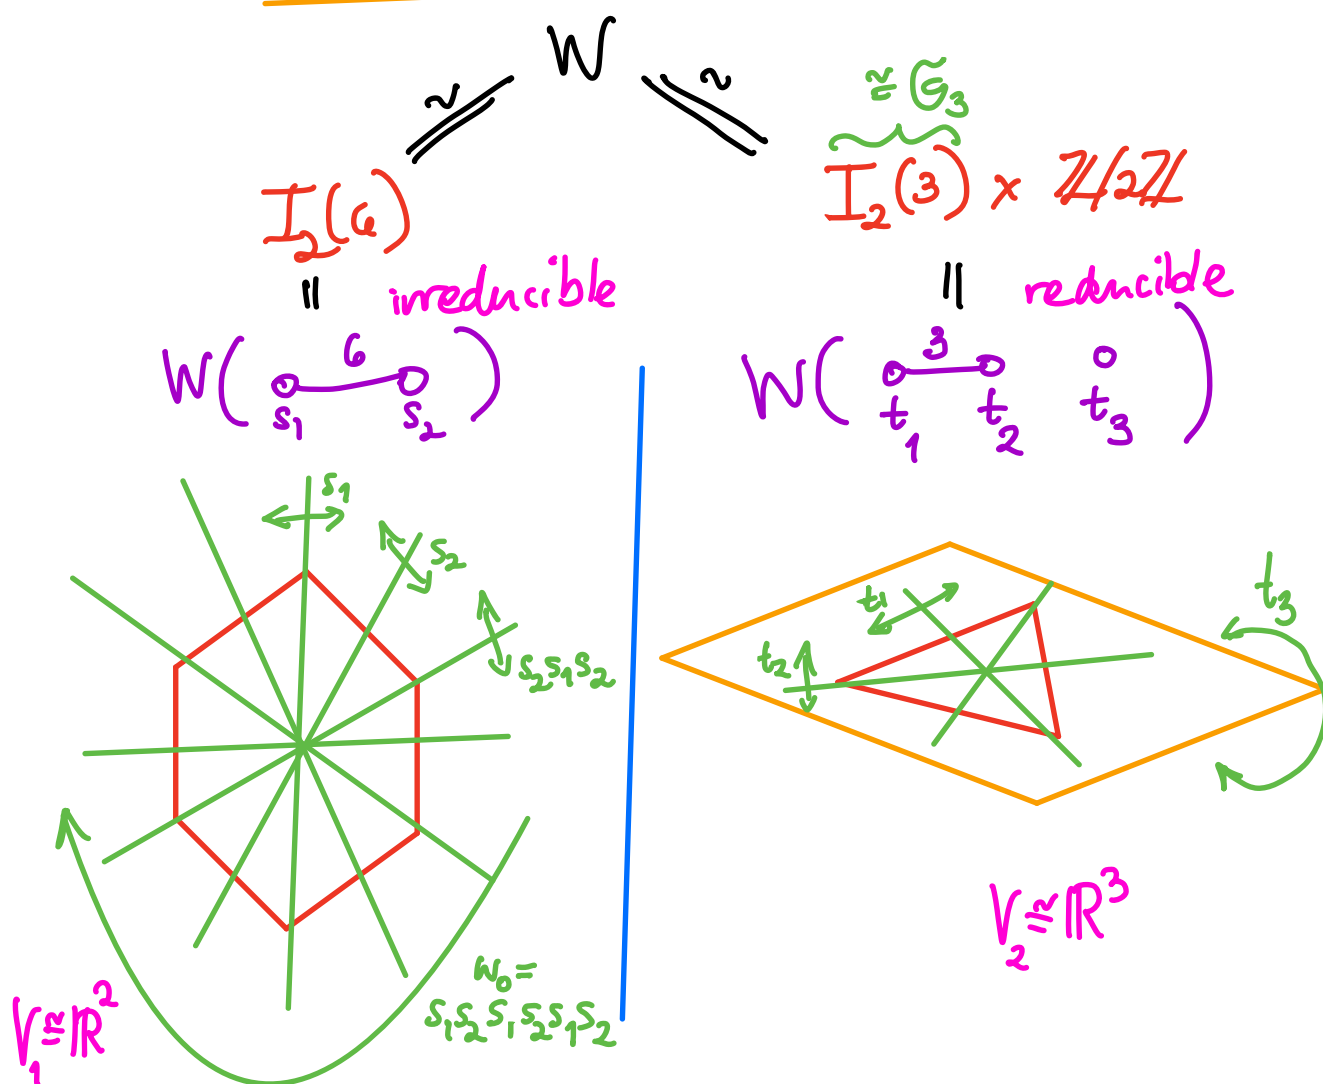 W
≃ ≃
≅ 𝔖₃
I₂(6)
I₂(3) × ℤ/2ℤ
irreducible
reducible
W( 6 )
s₁ s₂
W( 3 )
t₁ t₂ t₃
s₁
s₂
s₂s₁s₂
w₀=
s₁s₂s₁s₂s₁s₂
V₁≅ℝ²
t₁
t₂
t₃
V₂≅ℝ³